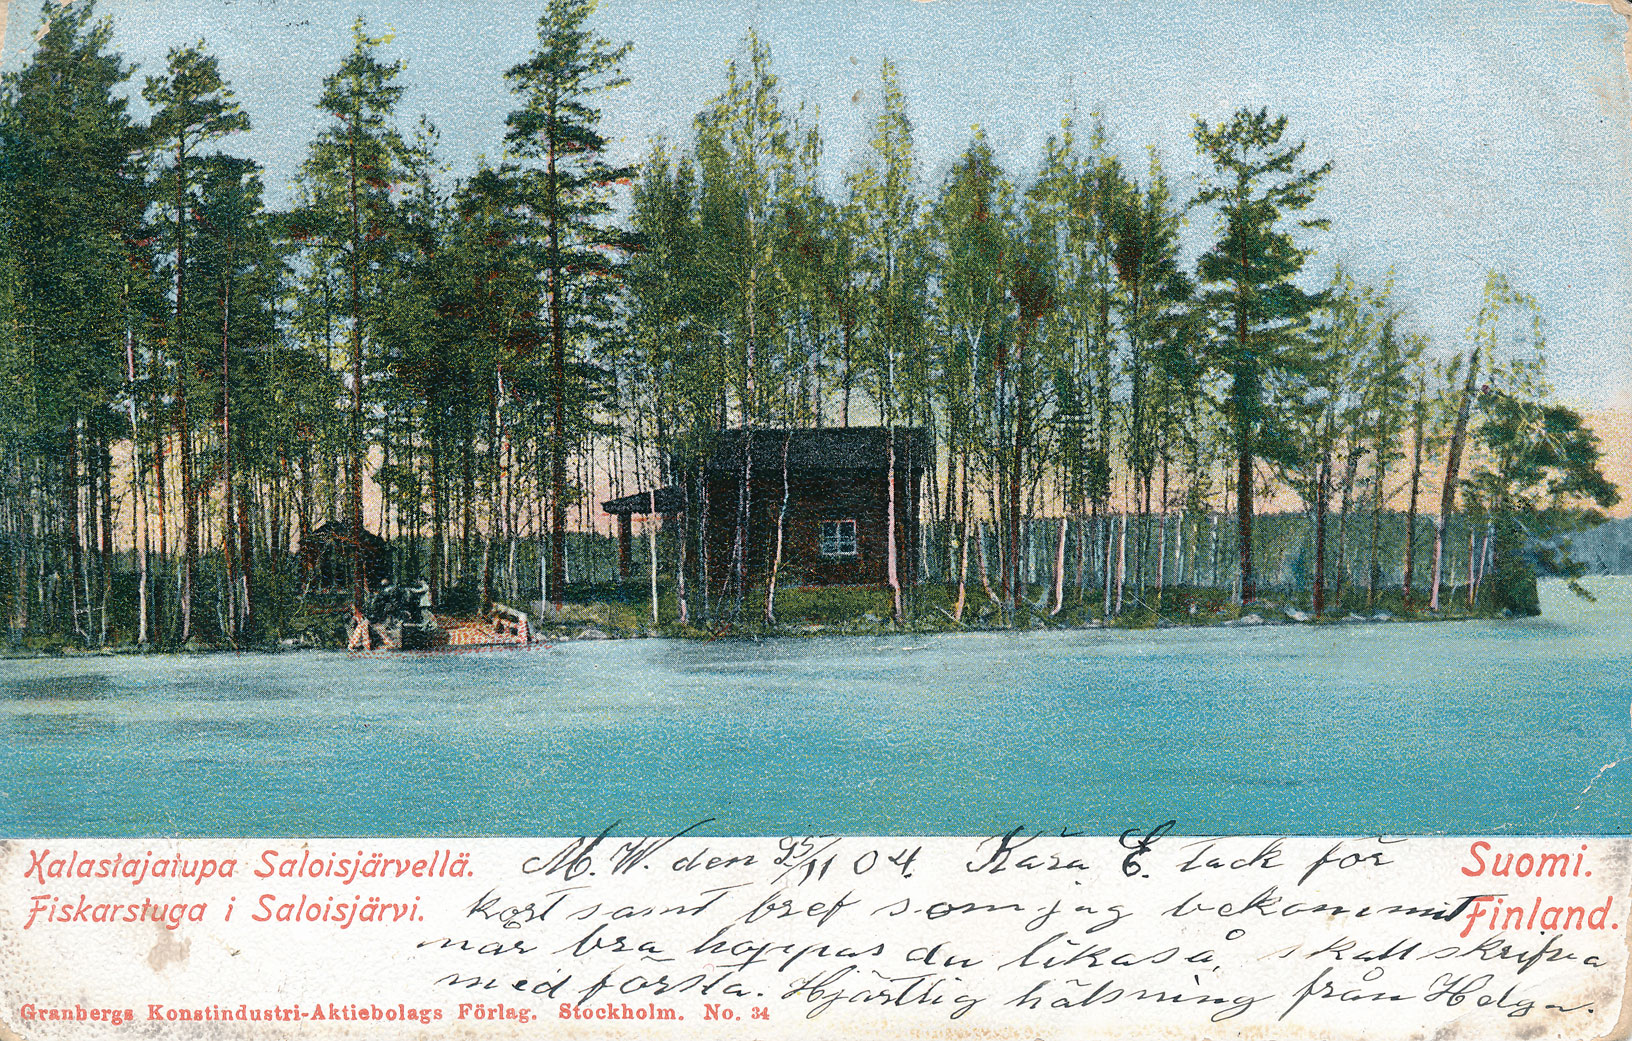 Kalastajatupa Saloisjärvellä.
Fiskarstuga i Saloisjärvi.
Suomi.
Finland.
M. W. den 25/11 04. Kära E. tack för
kort samt bref som jag bekommit
mår bra hoppas du likaså, skall skrifva
med första. Hjärtlig hälsning från Helga.
Granbergs Konstindustri-Aktiebolags Förlag. Stockholm. No. 34